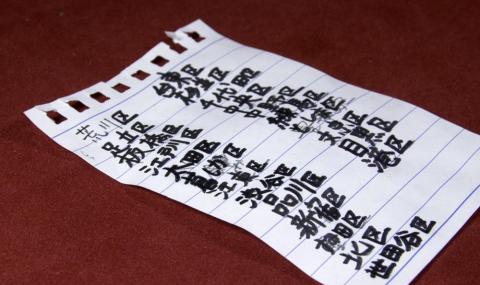 荒川区
足立区
板橋区
江戸川区
大田区
葛飾区
江東区
渋谷区
品川区
新宿区
墨田区
北区
世田谷区
台東区
杉並区
千代田区
中央区
中野区
練馬区
豊島区
文京区
目黒区
港区